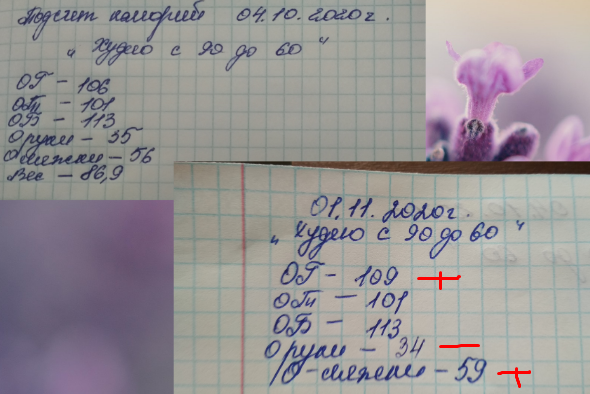 Подсчет калорий 04.10.2020г.
"Худею с 90 до 60"
ОГ - 106
ОТ - 101
ОБ - 113
О руки - 35
О ляжки - 56
Вес - 86,9
01.11.2020г.
"Худею с 90 до 60"
ОГ - 109 +
ОТ - 101
ОБ - 113
О руки - 34 -
О-ляжки - 59 +